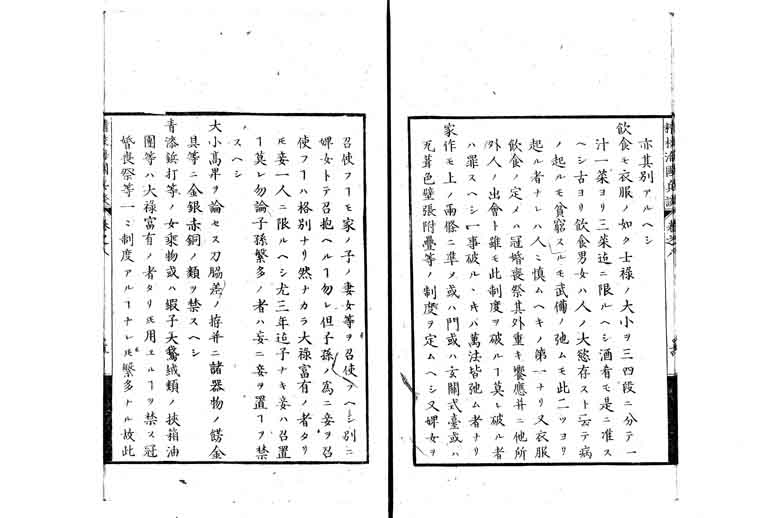 亦其別アルヘシ
飲食モ衣服ノ如ク士祿ノ大小ヲ三四段ニ分テ一
汁一菜ヨリ三菜迄ニ限ルヘシ酒肴モ是ニ准ス
ヘシ古ヨリ飲食男女ハ人ノ大慾存スト云テ病
ノ起ルモ貧窮スルモ武備ノ弛ムモ此二ツヨリ
起ル者ナレハ人ニ慎ムヘキノ第一ナリ又衣服
飲食ノ定メハ冠婚喪祭其外重キ饗應并ニ他所
外人ノ出會ト雖モ此制度ヲ破ルヿ莫レ破ル者
ハ罪スヘシ一事破ルヽキハ萬法皆弛ム者ナリ
家作モ上ノ兩俗ニ準ヲ或ハ門或ハ玄關式臺或ハ
瓦葺色壁張附疊等ノ制度ヲ定ムヘシ又婢女ヲ
召使フヿモ家ノ子ノ妻女等ヲ召使フヘシ別ニ
婢女トテ召抱ヘルヿ勿レ但子孫ノ爲ニ妾ヲ召
使フヿハ格別ナリ然ナカラ大祿富有ノ者タリ
𪜈妾一人ニ限ルヘシ尤三年迄子ナキ妾ハ召置
ヿ莫レ勿論子孫繁多ノ者ハ妄ニ妾ヲ置ヿヲ禁
スヘシ
大小高卑ヲ論セス刀脇差ノ拵并ニ諸器物ノ餝金
具等ニ金銀赤銅ノ類ヲ禁スヘシ
青漆鋲打等ノ女乘物或ハ緞子天鵞絨類ノ挾箱油
團等ハ大祿富有ノ者タリ𪜈用エルヿヲ禁ス冠
婚喪祭等一ニ制度アルヿナレ𪜈繁多ナル故此